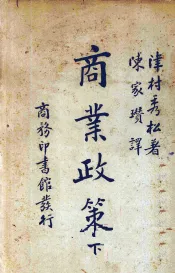 津村秀松著
陳家瓚譯
商業政策下
商務印書館發行